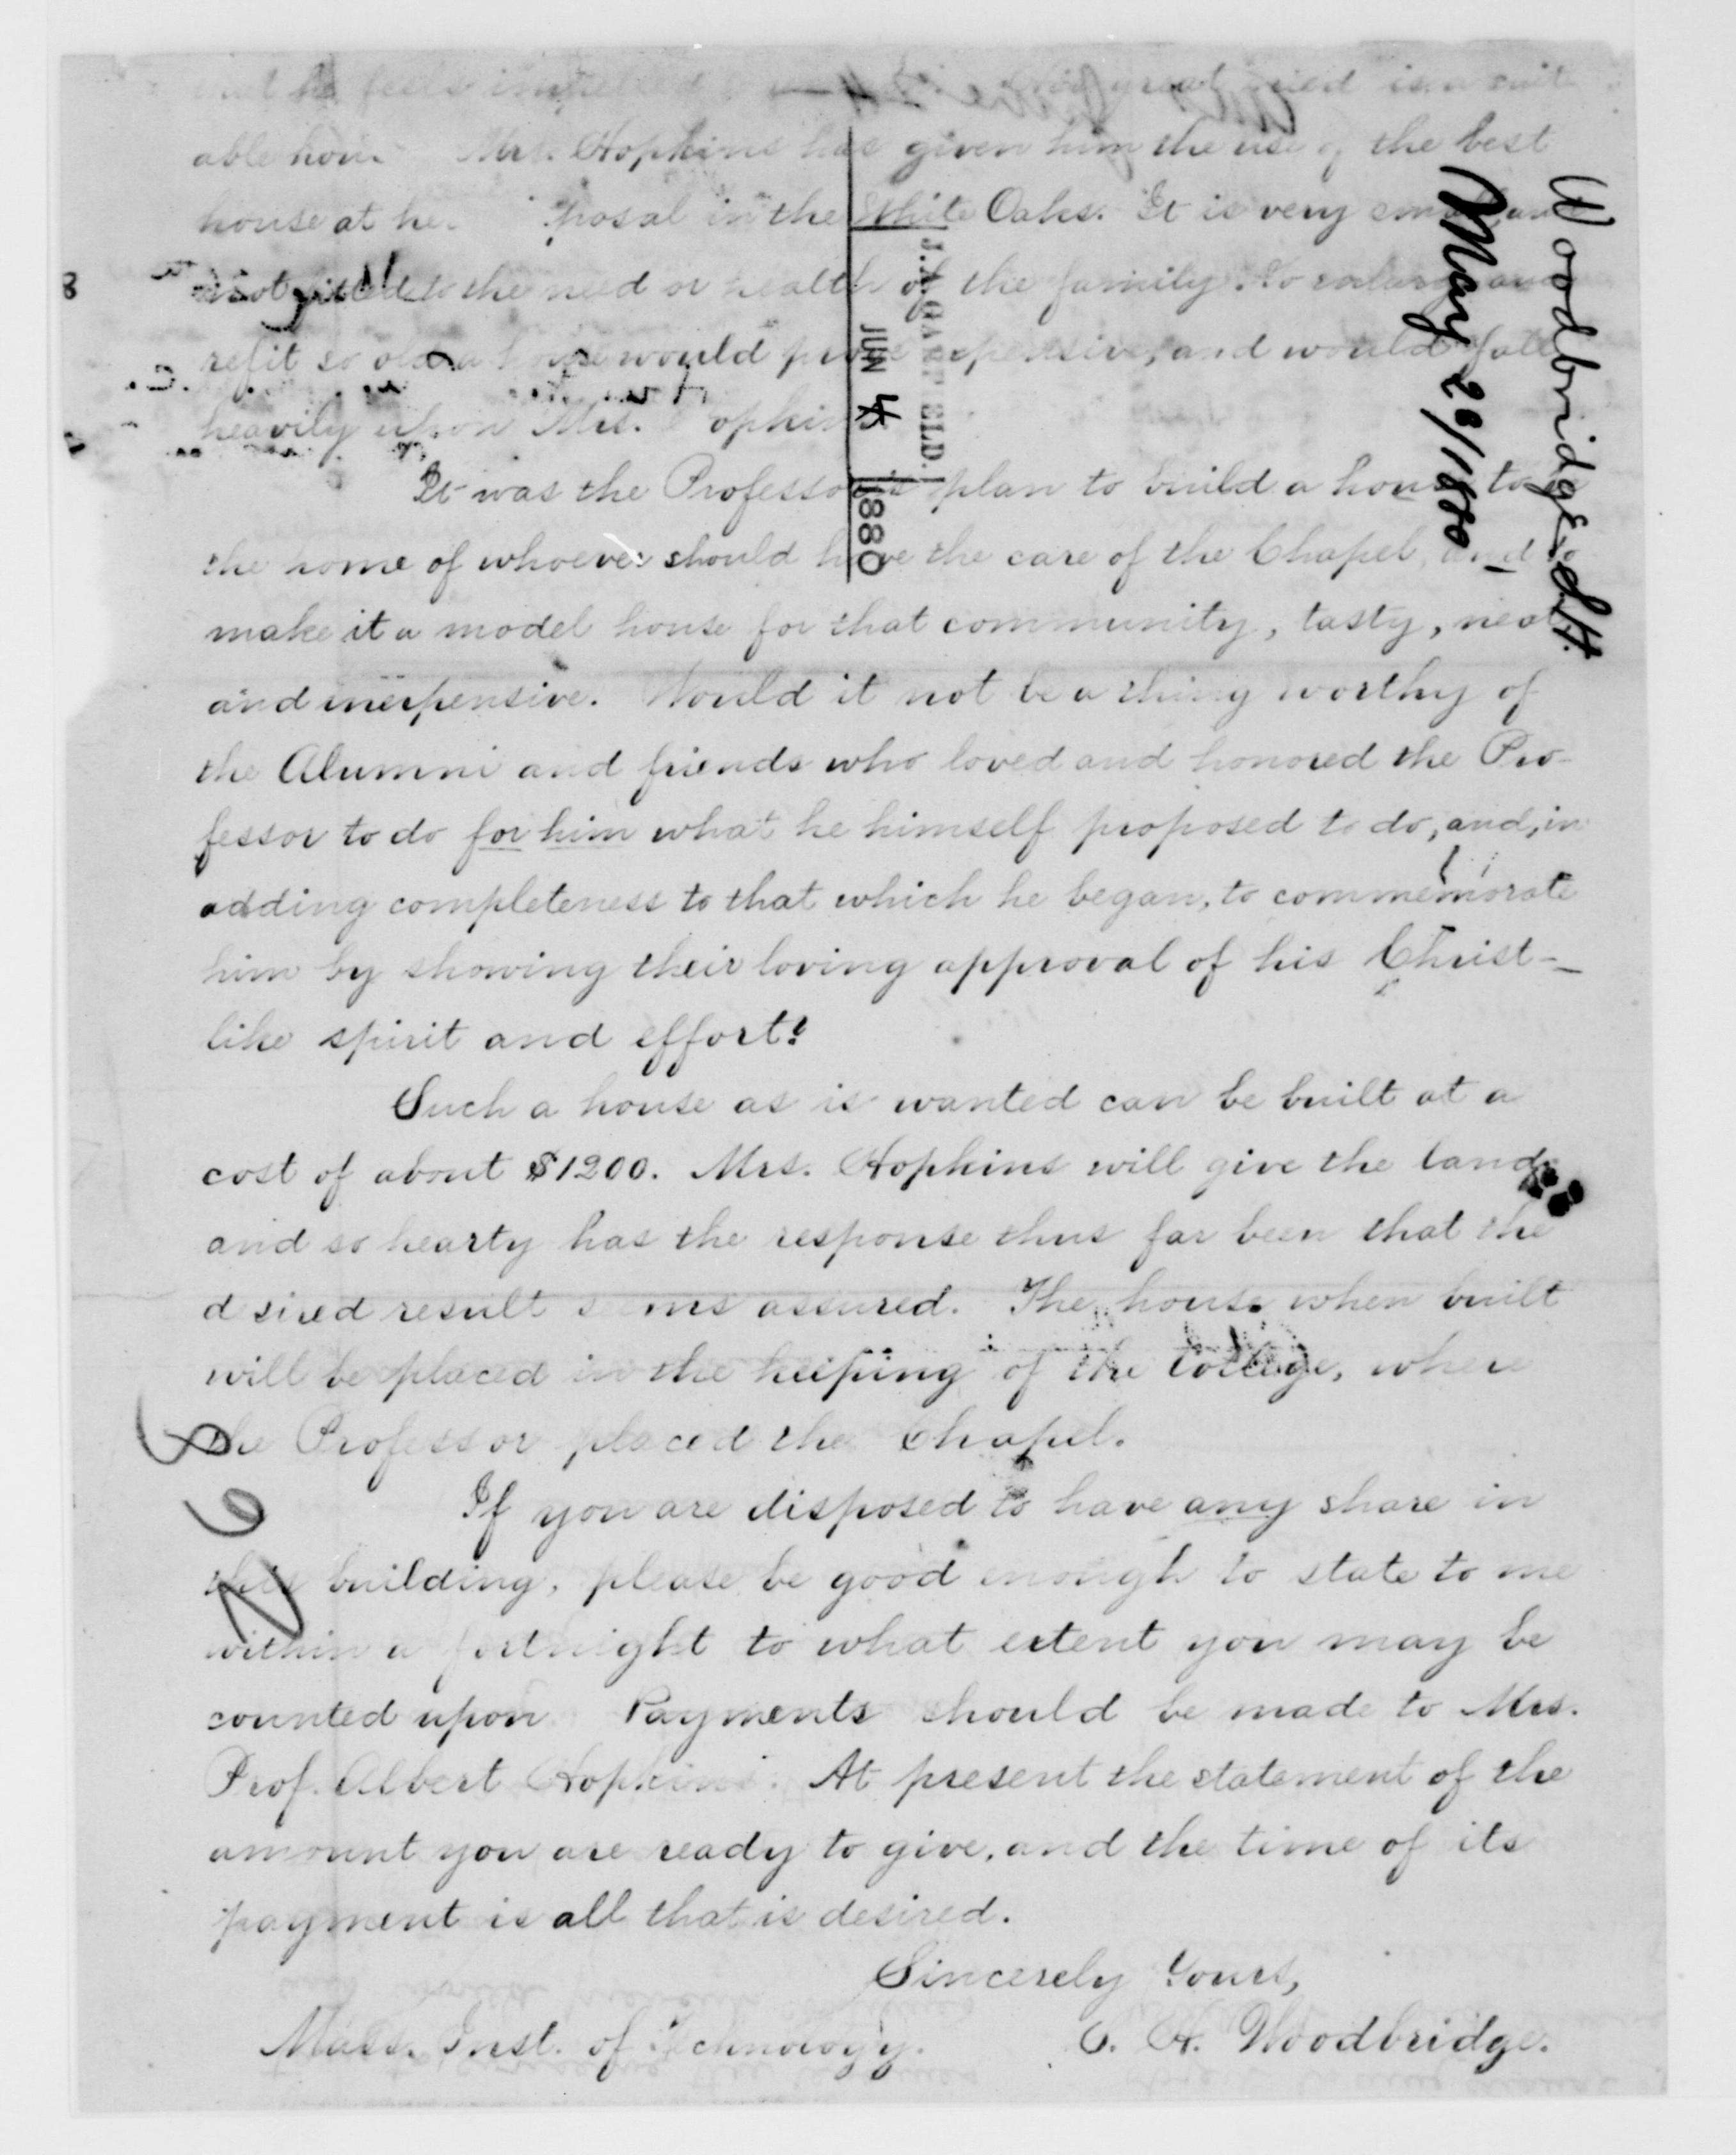 he feels impelled great need is a suit
able home Mrs. Hopkins has given him the use of the best
house at he posal in the White Oaks. It is very small, and
not fitted to the need or health of the family. To enlarge and
refit so old a house would prove expensive, and would fall
heavily upon Mrs. opkin
It was the Professor's plan to build a house to be
the home of whoever should have the care of the Chapel, and to
make it a model house for that community, tasty, neat
and inexpensive. Would it not be a thing worthy of
the Alumni and friends who loved and honored the Pro-
fessor to do for him what he himself proposed to do, and, in
adding completeness to that which he began, to commemorate
him by showing their loving approval of his Christ-
like spirit and effort?
Such a house as is wanted can be built at a
cost of about $1200. Mrs. Hopkins will give the land,
and so hearty has the response thus far been that the
desired result seems assured. The house when built
will be placed in the keeping of the College, where
the Professor placed the Chapel.
If you are disposed to have any share in
this building, please be good enough to state to me
within a fortnight to what extent you may be
counted upon. Payments should be made to Mrs.
Prof. Albert Hopkins. At present the statement of the
amount you are ready to give, and the time of its
payment is all that is desired.
Sincerely Yours,
Mass. Inst. of Technology. S. H. Woodbridge.
Woodbridge S.H.
May 28/1880
J. A. GARFIELD.
JUN 4 1880